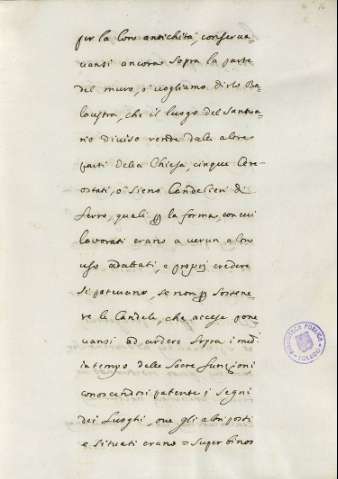 per la loro antichità, conserva-
vansi ancora sopra la parte
del muro, o vogliamo dirlo Ba-
laustra, che il luogo del Santua-
rio diviso rende dalle altre
parti della Chiesa, cinque Cero-
ostati, o sieno Candelieri di
ferro, quali la forma, con cui
lavorati erano a verun altro
uso adattati, e proprj credere
si potevano, se non sostene-
re le Candele, che accese pone-
vansi ad ardere sopra i med.
in tempo delle Sacre funzioni
conoscendosi patente i segni
dei Luoghi, ove gli altri posti
e situati erano = super binos
BIBLIOTECA PUBLICA
TOLEDO